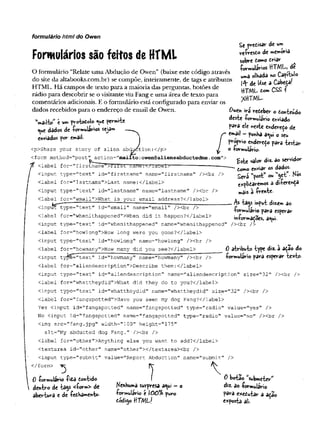 formulário html do Owen
Formulários são feitos de HTML
O formulário "Relate uma Abdução de Owen" (baixe este código através
do site da altabooks.com.br) se compõe, inteiramente, de tags e atributos
HTML. Há campos de texto para a maioria das perguntas, botões de
rádio para descobrir se o visitante viu Fang e uma área de texto para
comentários adicionais. E o formulário está configurado para enviar os
dados recebidos para o endereço de email de Owen.
Se precisar de um
refresco de memória
sobre como criar
formulários HTML, dê
uma olhada no Capítulo
14 de Use a Cabeça!
HTML com CSS e
XHTML.
"mailto" é um protocolo que permite
que dados de formulários sejam
enviados por email.
Owen irá receber o conteúdo
deste formulário enviado
para ele neste endereço de
email – ponha aqui o seu
próprio endereço para testar
o formulário.
<p>Share your story of alien abduction:</p>
<form method="post" action="mailto:owen@aliensabductedme.com">
<label for="firstname">First name:</label>
<input type="text" id="firstname" name="firstname" /><br />
<label for="lastname">Last name:</label>
<input type="text" id="lastname" name="lastname" /><br />
<label for="email">What is your email address?</label>
<input type="text" id="email" name="email" /><br />
<label for="whenithappened">When did it happen?</label>
<input type="text" id="whenithappened" name="whenithappened" /><br />
<label for="howlong">How long were you gone?</label>
<input type="text" id="howlong" name="howlong" /><br />
<label for="howmany">How many did you see?</label>
<input type="text" id="howmany" name="howmany" /><br />
<label for="aliendescription">Describe them:</label>
<input type="text" id="aliendescription" name="aliendescription" size="32" /><br />
<label for="whattheydid">What did they do to you?</label>
<input type="text" id="whattheydid" name="whattheydid" size="32" /><br />
<label for="fangspotted">Have you seen my dog Fang?</label>
Yes <input id="fangspotted" name="fangspotted" type="radio" value="yes" />
No <input id="fangspotted" name="fangspotted" type="radio" value="no" /><br />
<img src="fang.jpg" width="100" height="175"
alt="My abducted dog Fang." /><br />
<label for="other">Anything else you want to add?</label>
<textarea id="other" name="other"></textarea><br />
<input type="submit" value="Report Abduction" name="submit" />
</form>
Este valor diz ao servidor
como enviar os dados.
Será "post" ou "get". Nós
explicaremos a diferença
mais à frente.
As tags input dizem ao
formulário para esperar
informações, aqui.
O atributo type diz à ação do
formulário para esperar texto.
O formulário fica contido
dentro de tags <form> de
abertura e de fechamento.
Nenhuma surpresa aqui – o
formulário é 100% puro
código HTML!
O botão "submeter"
diz ao formulário
para executar a ação
exposta ali.